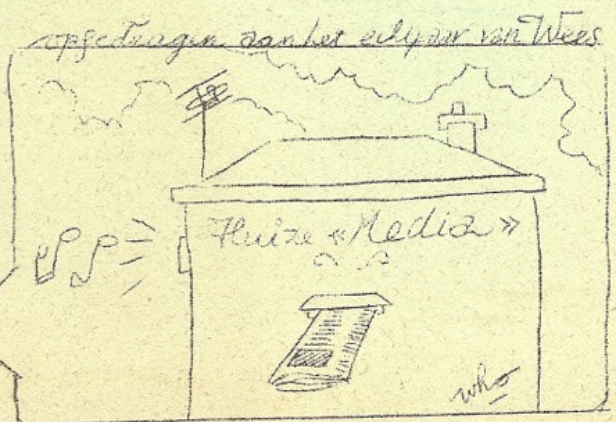 opgedragen aan het echtpaar van Wees
Huize «Media»
who